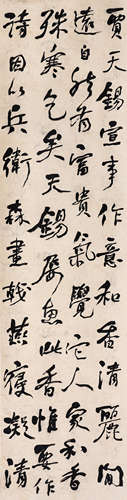 賈天錫宣事作意和香清麗閒
遠自然有富貴氣覺它人家和香
殊寒乞矣天錫屢惠此香惟要作
詩因以兵衛森畫戟燕寢凝清